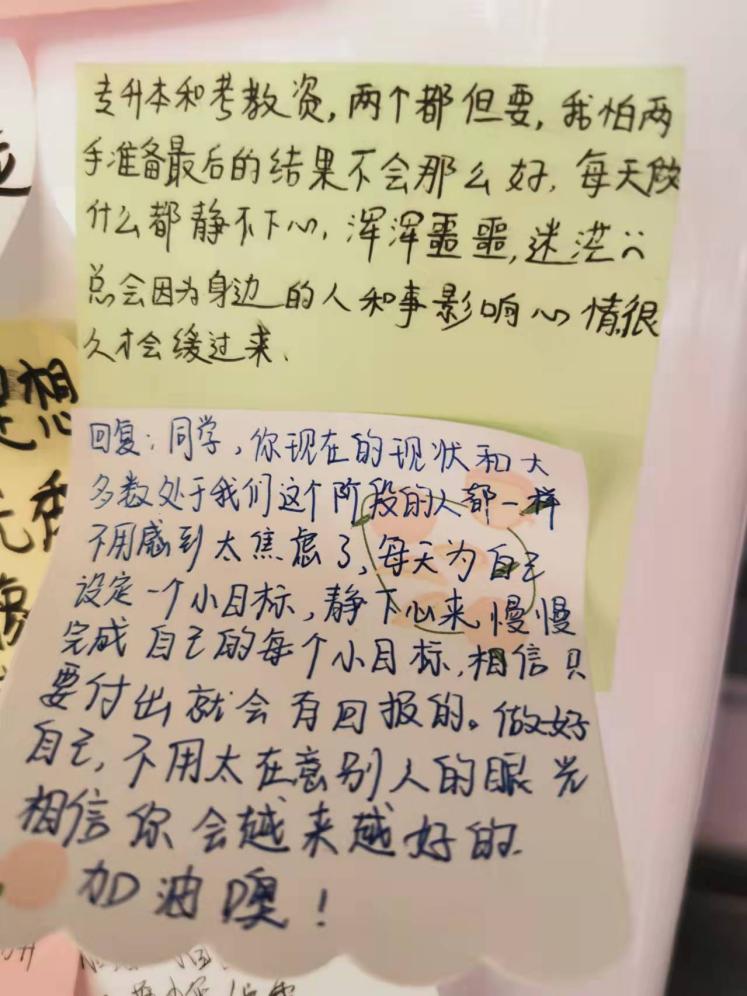 专升本和考教资，两个都但要，我怕两
手准备最后的结果不会那么好，每天做
什么都静不下心，浑浑噩噩，迷茫
总会因为身边的人和事影响心情很
久才会缓过来．
回复：同学，你现在的现状和大
多数处于我们这个阶段的人都一样
不用感到太焦虑了，每天为自己
设定一个小目标，静下心来慢慢
完成自己的每个小目标，相信只
要付出就会有回报的。做好
自己，不用太在意别人的眼光
相信你会越来越好的．
加油噢！
想